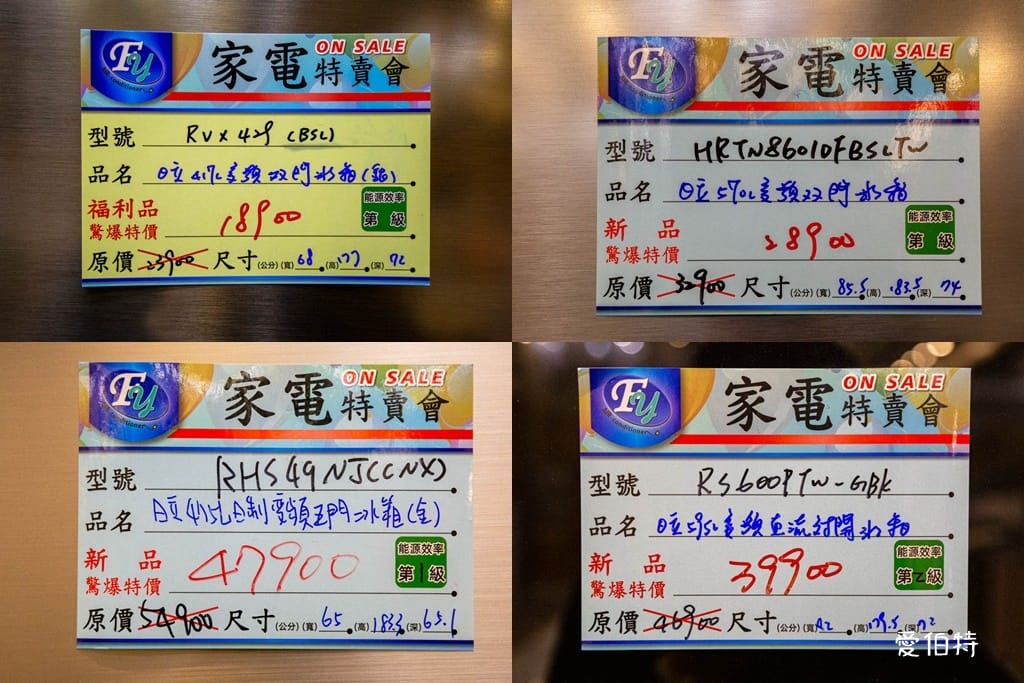 FY
Air Conditioner
家電特賣會 ON SALE
型號 RVX429 (BSL)
品名 日立417L變頻双門冰箱(銀)
福利品
驚爆特價 18900
能源效率
第 級
原價 23900 尺寸(公分)(寬) 68 (高) 177 (深) 72
FY
家電特賣會 ON SALE
型號 HRTN8601DFBSLTW
品名 日立570L變頻双門冰箱
新品
驚爆特價 28900
能源效率
第 級
原價 32900 尺寸(公分)(寬) 85.5 (高) 183.5 (深) 74
FY
Air Conditioner
家電特賣會 ON SALE
型號 RHS49NJ(CNX)
品名 日立475L日制變頻五門冰箱(金)
新品
驚爆特價 47900
能源效率
第1級
原價 54900 尺寸(公分)(寬) 65 (高) 183.3 (深) 65.1
FY
Air Conditioner
家電特賣會 ON SALE
型號 RS600PTW-GBK
品名 日立595L變頻直流對開冰箱
新品
驚爆特價 39900
能源效率
第2級
原價 46900 尺寸(公分)(寬) 92 (高) 179.5 (深) 72
愛伯特